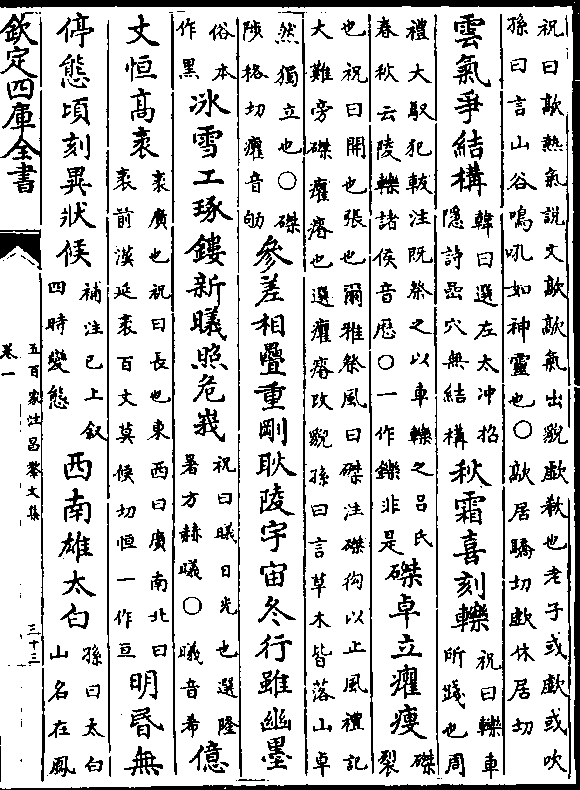 祝曰歊熱氣說文歊歊氣出貌歔欷也老子或歔或吹
孫曰言山谷鳴吼如神靈也○歊居驕切歔休居切
雲氣爭結構
韓曰選左太冲招
隱詩嵒穴無結構
秋霜喜刻轢
祝曰轢車
所踐也周
禮大馭犯軷注既祭之以車轢之吕氏
春秋云陵轢諸侯音歴○一作鑠非是
磔卓立癯瘦
磔
裂
也祝曰開也張也爾雅祭風曰磔注磔狗以止風禮記
大難旁磔癯瘠也選癯瘠改貌孫曰言草木皆落山卓
然獨立也○磔
陟格切癯音劬
參差相疊重剛耿陵宇宙冬行雖幽墨
俗本
作黑
冰雪工琢鏤新曦照危峩
祝曰曦日光也選隆
暑方赫曦○曦音希
億
丈恒高袤
袤廣也祝曰長也東西曰廣南北曰
袤前漢延袤百丈莫候切恒一作亘
明昏無
停態頃刻異狀候
補注已上叙
四時變態
西南雄太白
孫曰太白
山名在鳳
欽定四庫全書
五百家注昌黎文集
卷一
三十三